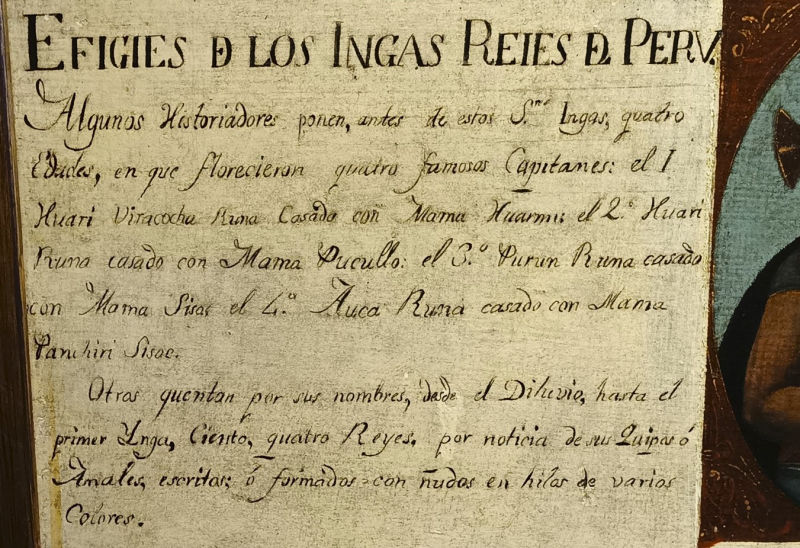 EFIGIES D LOS INGAS REIES D PERV.
Algunos Historiadores ponen, antes de estos S.res Ingas, quatro
Edades, en que florecieron quatro famosos Capitanes: el I
Huari Viracocha Runa Casado con Mama Huarmi: el 2.º Huari
Runa casado con Mama Pucullo: el 3.º Purun Runa casado
con Mama Sisac el 4.º Auca Runa casado con Mama
Panchiri Sisac.
Otros quentan por sus nombres, desde el Diluvio, hasta el
primer Ynga, Ciento, quatro Reyes, por noticia de sus Quipos ó
Anales, escritos: ó formados con ñudos en hilos de varios
Colores.